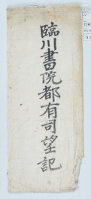 臨川書院都有司望記